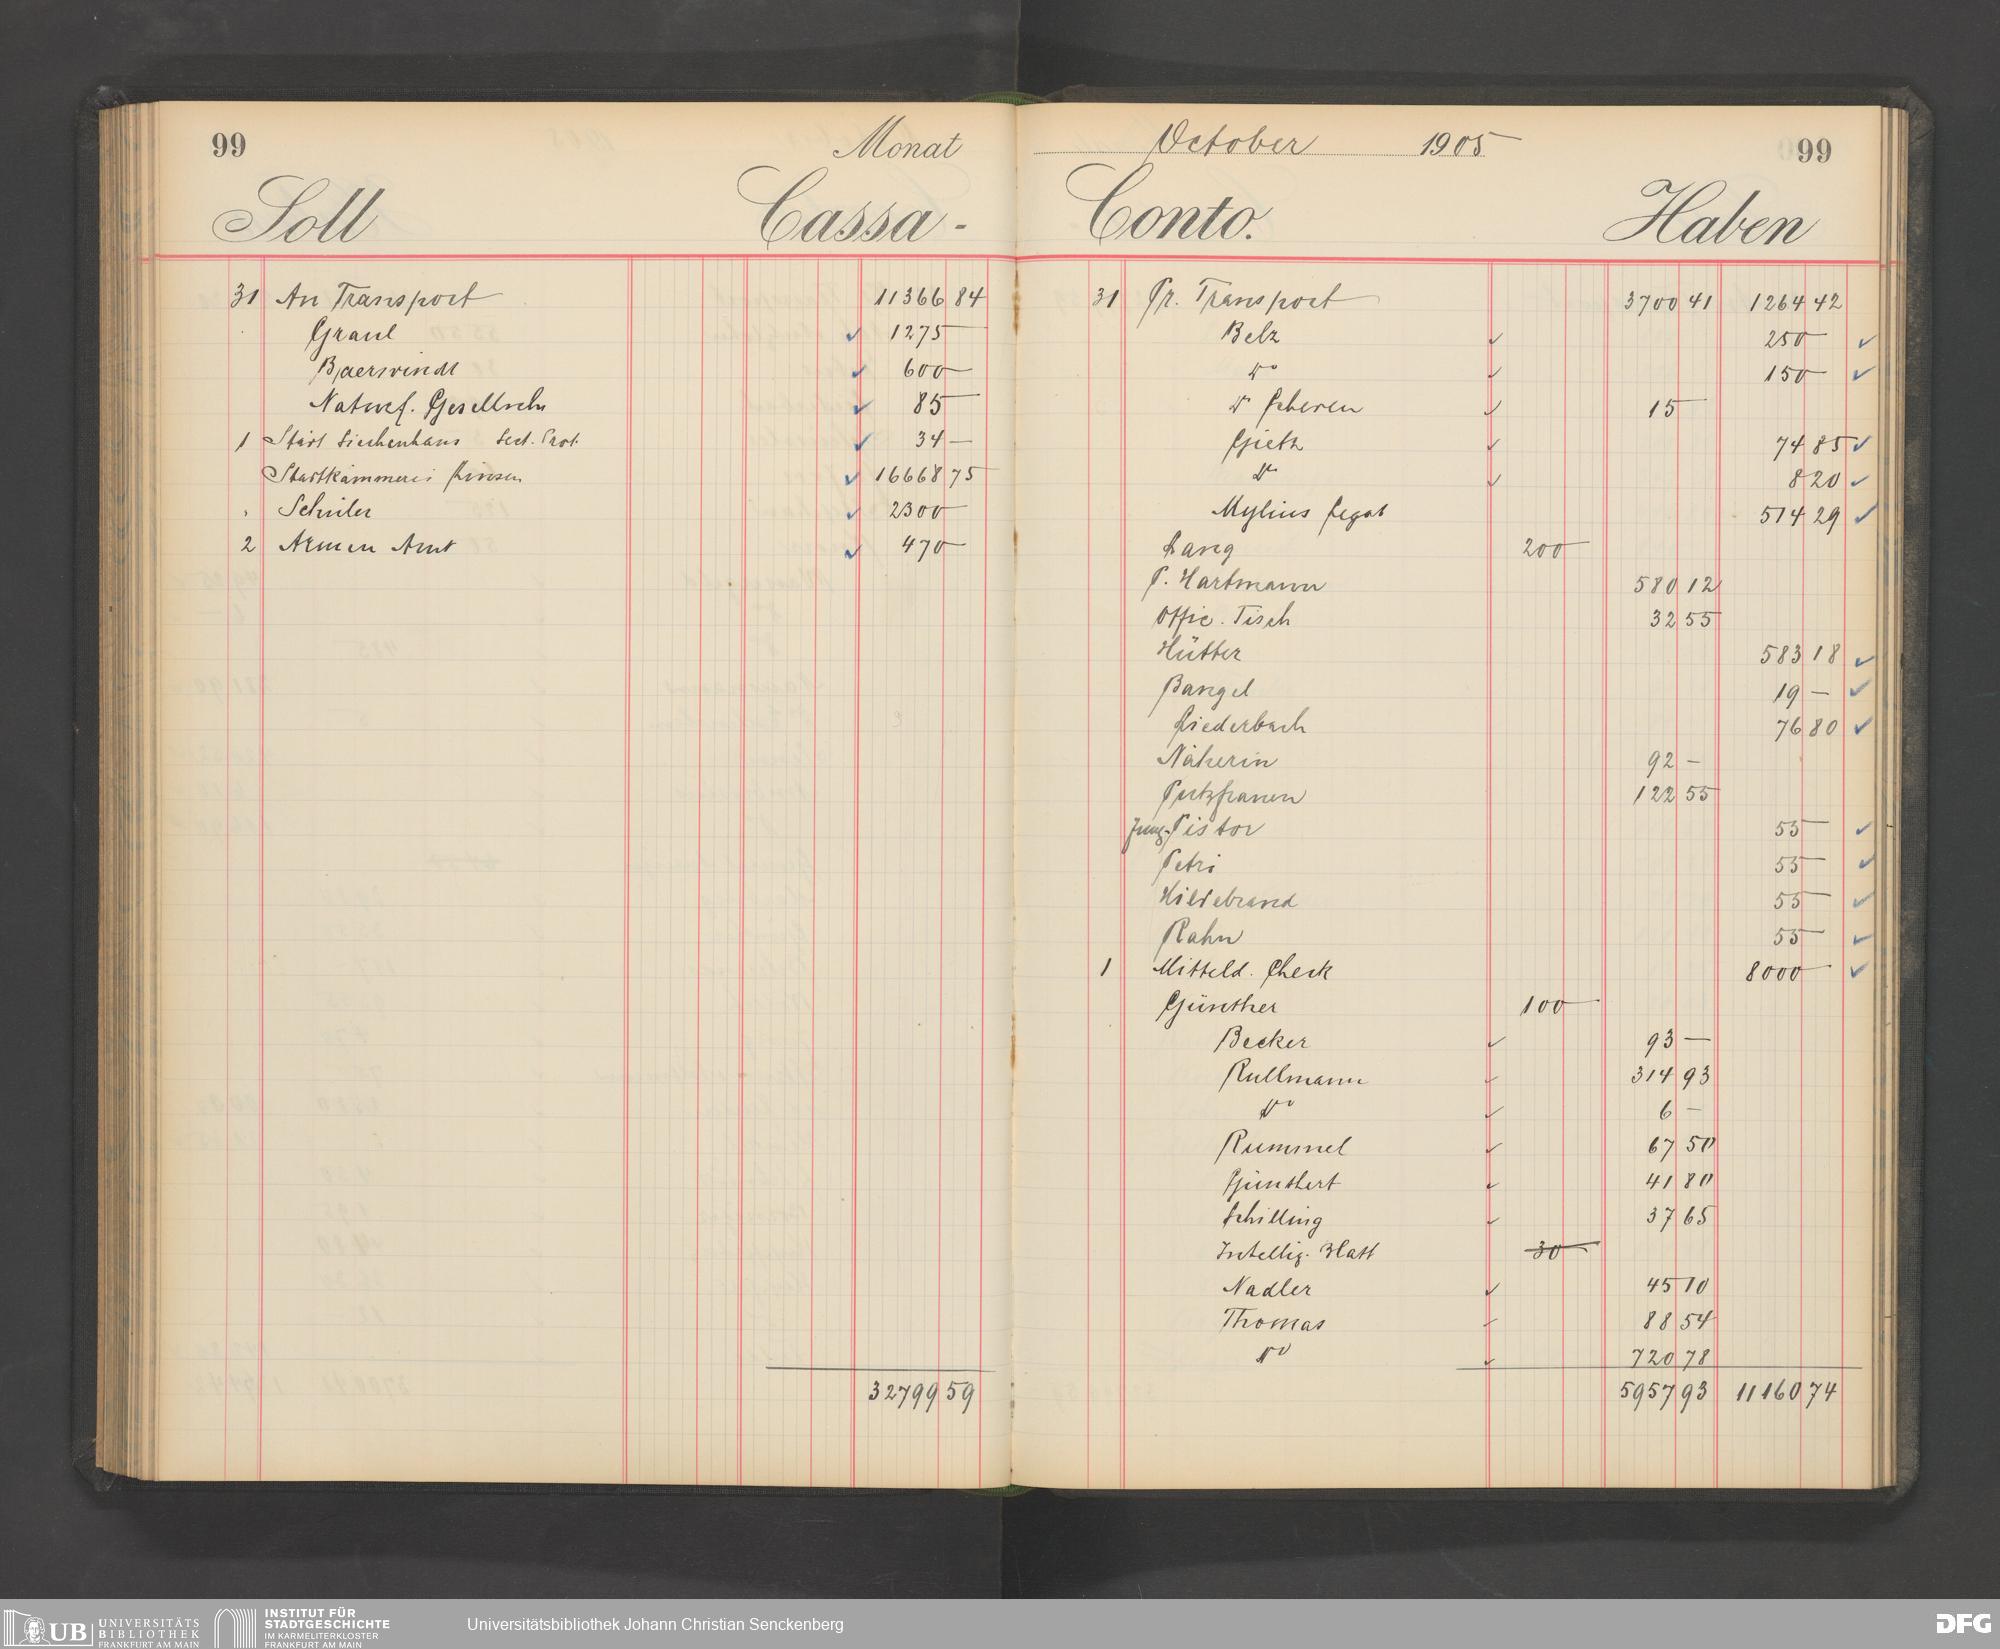 99 Monat
Soll Cassa-
31 An Transport 11366 84
Graul 1275 —
Baerwindt 600 —
Natwf. Gesellsch 85 —
1 Städt Siechenhaus Sect. Prot. 34 —
Stadtkämmerei Zinsen 16668 75
" Schuler 2300 —
2 Armen Amt 470 —
32799 59
October 1905 99
Conto. Haben
31 Pr. Transport 3700 41 1264 42
Belz 250 —
do 150 —
do Scheren 15 —
Gieth 74 85
do 8 20
Mylius Legat 514 29
Lang 200 —
P. Hartmann 580 12
Offic. Tisch 32 55
Hütter 583 18
Bangel 19 —
Liederbach 76 80
Näherin 92 —
Putzfrauen 122 55
Jung-Pistor 55 —
Petri 55 —
Hildebrand 55 —
Rahn 55 —
1 Mitteld. Check 8000 —
Günther 100 —
Becker 93 —
Rullmann 314 93
do 6 —
Rummel 67 50
Günthert 41 80
Schilling 37 65
Intellig. Blatt 30 —
Nadler 45 10
Thomas 88 54
do 720 78
5957 93 11160 74
UB UNIVERSITÄTS
BIBLIOTHEK
FRANKFURT AM MAIN
INSTITUT FÜR
STADTGESCHICHTE
IM KARMELITERKLOSTER
FRANKFURT AM MAIN
Universitätsbibliothek Johann Christian Senckenberg
DFG